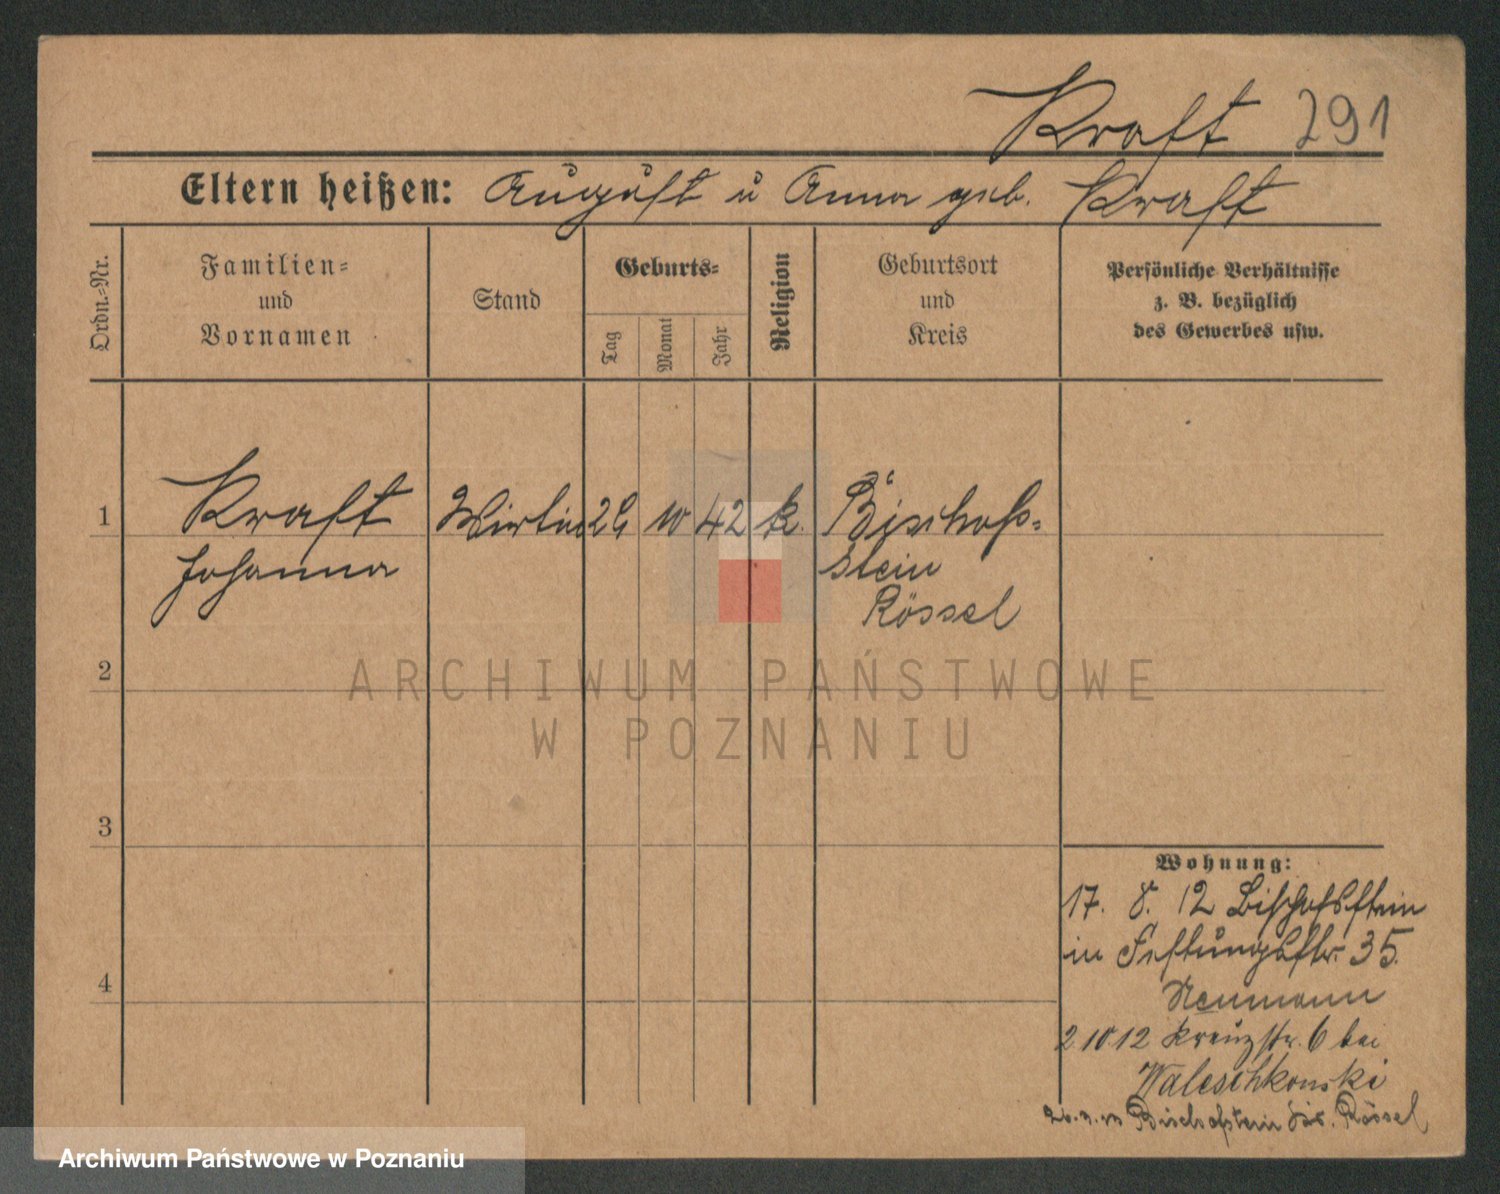 Kraft 291
Eltern heißen: August u Anna geb. Kraft
Ordn.-Nr.
Familien-
und
Vornamen
Stand
Geburts-
Tag
Monat
Jahr
Religion
Geburtsort
und
Kreis
Persönliche Verhältnisse
z. B. bezüglich
des Gewerbes usw.
1 Kraft Wirtin 29 10 42 k. Bischofs-
Johanna stein
Rössel
2
ARCHIWUM PAŃSTWOWE
W POZNANIU
3
4
Wohnung:
17. 8. 12 Bischofstein
in Festungsstr. 35.
Neumann
2.10.12 Kreuzstr. 6 bei
Waleschkowski
Bischofstein Rössel
Archiwum Państwowe w Poznaniu